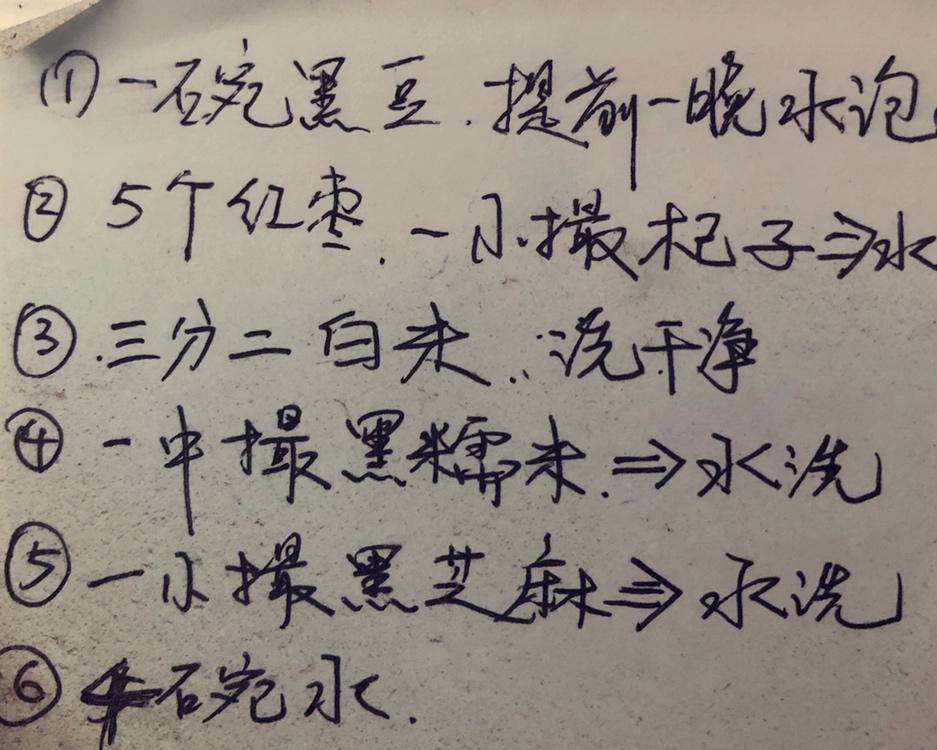 ① 一碗黑豆．提前一晚水泡
② 5个红枣．一小撮杞子⇒水
③ 三分二白米．洗干净
④ 一中撮黑糯米．⇒水洗
⑤ 一小撮黑芝麻⇒水洗
⑥ 4碗水．